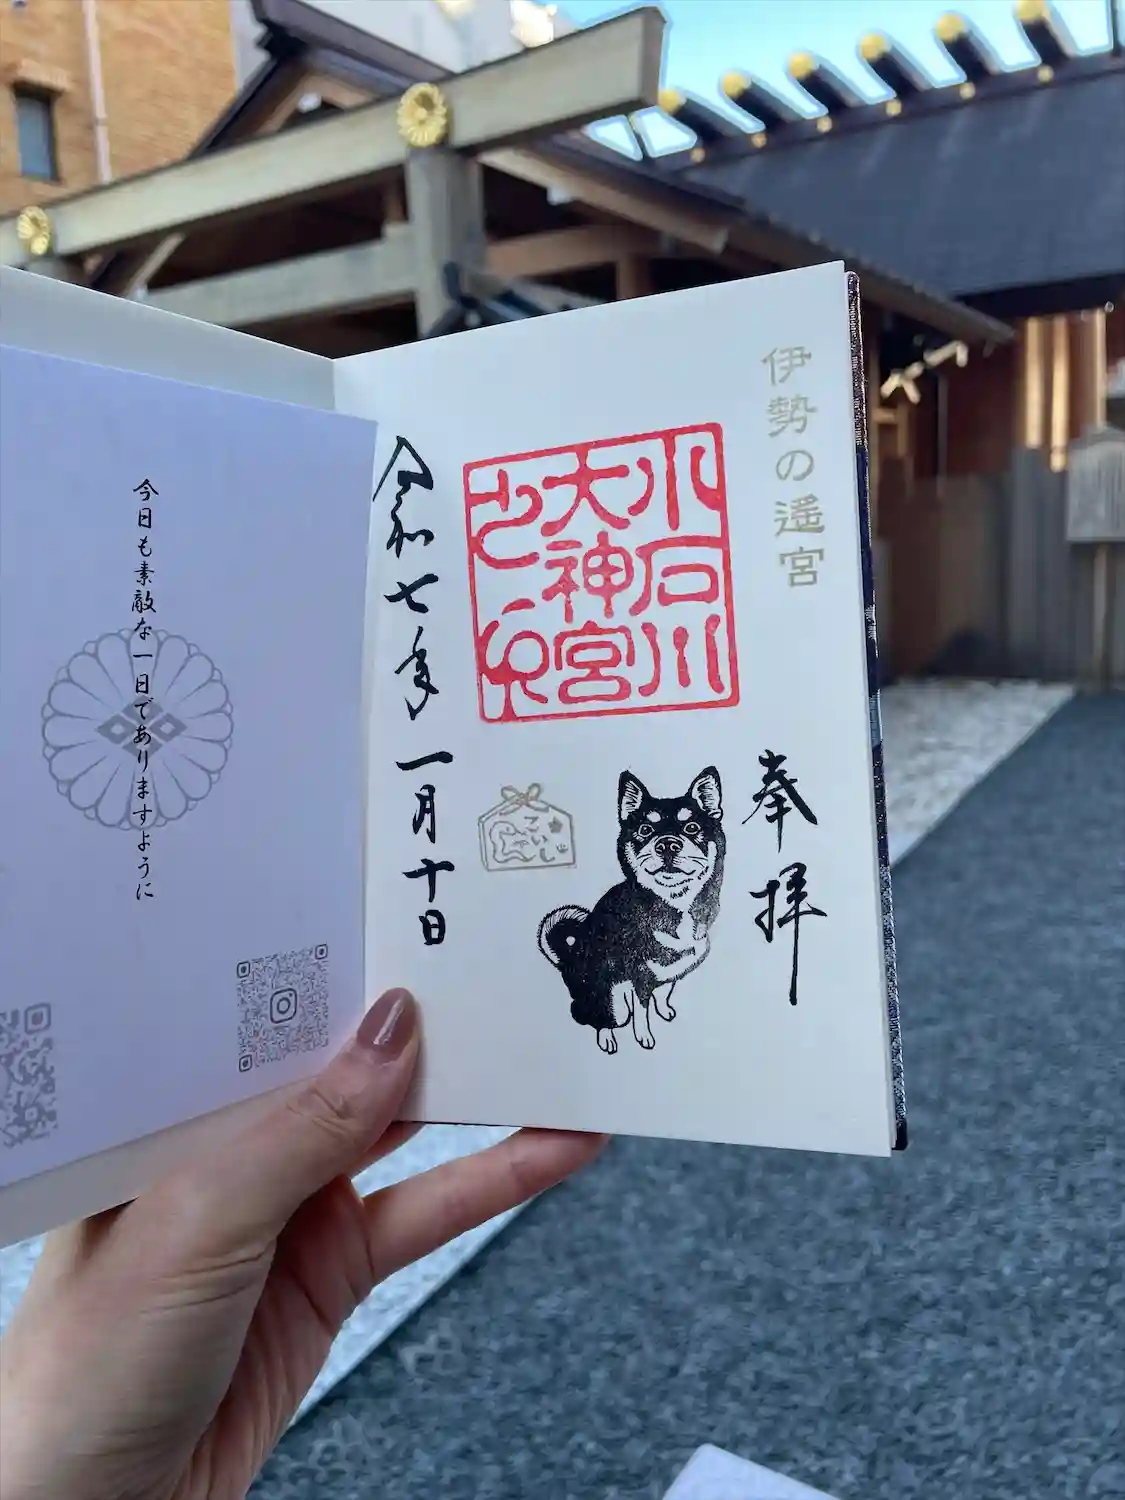 伊勢の遥宮
奉拝
小石川
大神宮
之印
こいし
令和七年一月十日
今日も素敵な一日でありますように